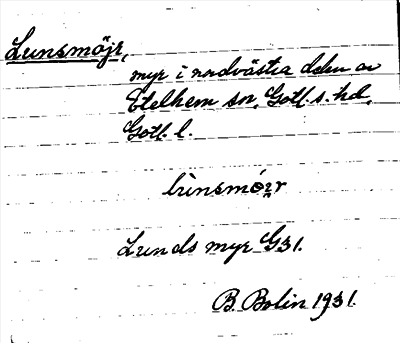 Lunsmöjr,
myr i nordvästra delen av
Etelhem sn, Gotl. s. hd,
Gotl. l.
lùnsmó̤i̯r
Lunds myr G31.
B. Bolin 1931.